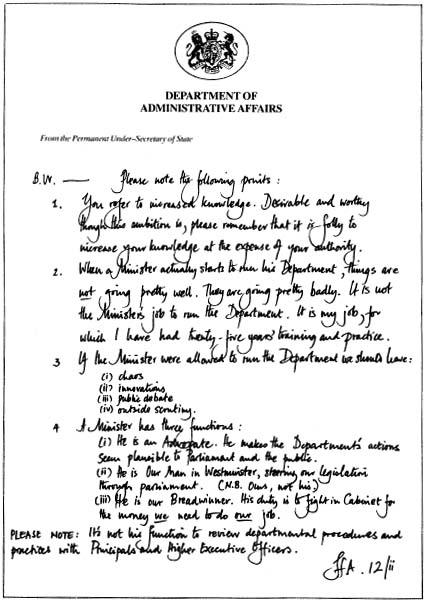 DEPARTMENT OF
ADMINISTRATIVE AFFAIRS
From the Permanent Under-Secretary of State
B.W. — Please note the following points :
1. You refer to increased knowledge. Desirable and worthy
though this ambition is, please remember that it is folly to
increase your knowledge at the expense of your authority.
2. When a Minister actually starts to run his Department, things are
not going pretty well. They are going pretty badly. It is not
the Minister's job to run the Department. It is my job, for
which I have had twenty-five years' training and practice.
3 If the Minister were allowed to run the Department we should have:
(i) chaos
(ii) innovations
(iii) public debate
(iv) outside scrutiny.
4 A Minister has three functions :
(i) He is an Advocate. He makes the Department's actions
seem plausible to Parliament and the public.
(ii) He is Our Man in Westminster, steering our legislation
through parliament. (N.B. Ours, not his)
(iii) He is our Breadwinner. His duty is to fight in Cabinet for
the money we need to do our job.
PLEASE NOTE: It's not his function to review departmental procedures and
practices with Principals and Higher Executive Officers.
HA. 12/ii